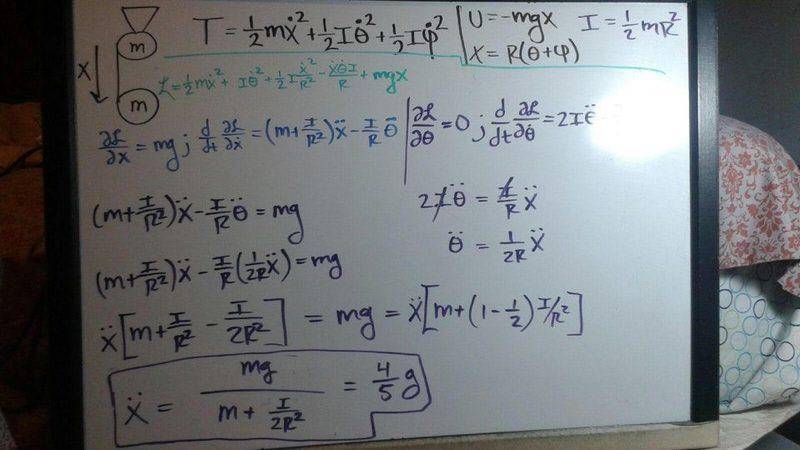 m
T = ½mẋ² + ½Iθ̇² + ½Iφ̇²
U = -mgx
I = ½mR²
x = R(θ+φ)
x
m
ℒ = ½mẋ² + Iθ̇² + ½I ẋ²/R² - ẋθ̇I/R + mgx
∂ℒ/∂x = mg ; d/dt ∂ℒ/∂ẋ = (m + I/R²)ẍ - I/R θ̈
∂ℒ/∂θ = 0 ; d/dt ∂ℒ/∂θ̇ = 2Iθ̈
(m + I/R²)ẍ - I/R θ̈ = mg
2Iθ̈ = I/R ẍ
θ̈ = 1/2R ẍ
(m + I/R²)ẍ - I/R(1/2R ẍ) = mg
ẍ[m + I/R² - I/2R²] = mg = ẍ[m + (1 - ½) I/R²]
ẍ = mg/(m + I/2R²) = 4/5 g